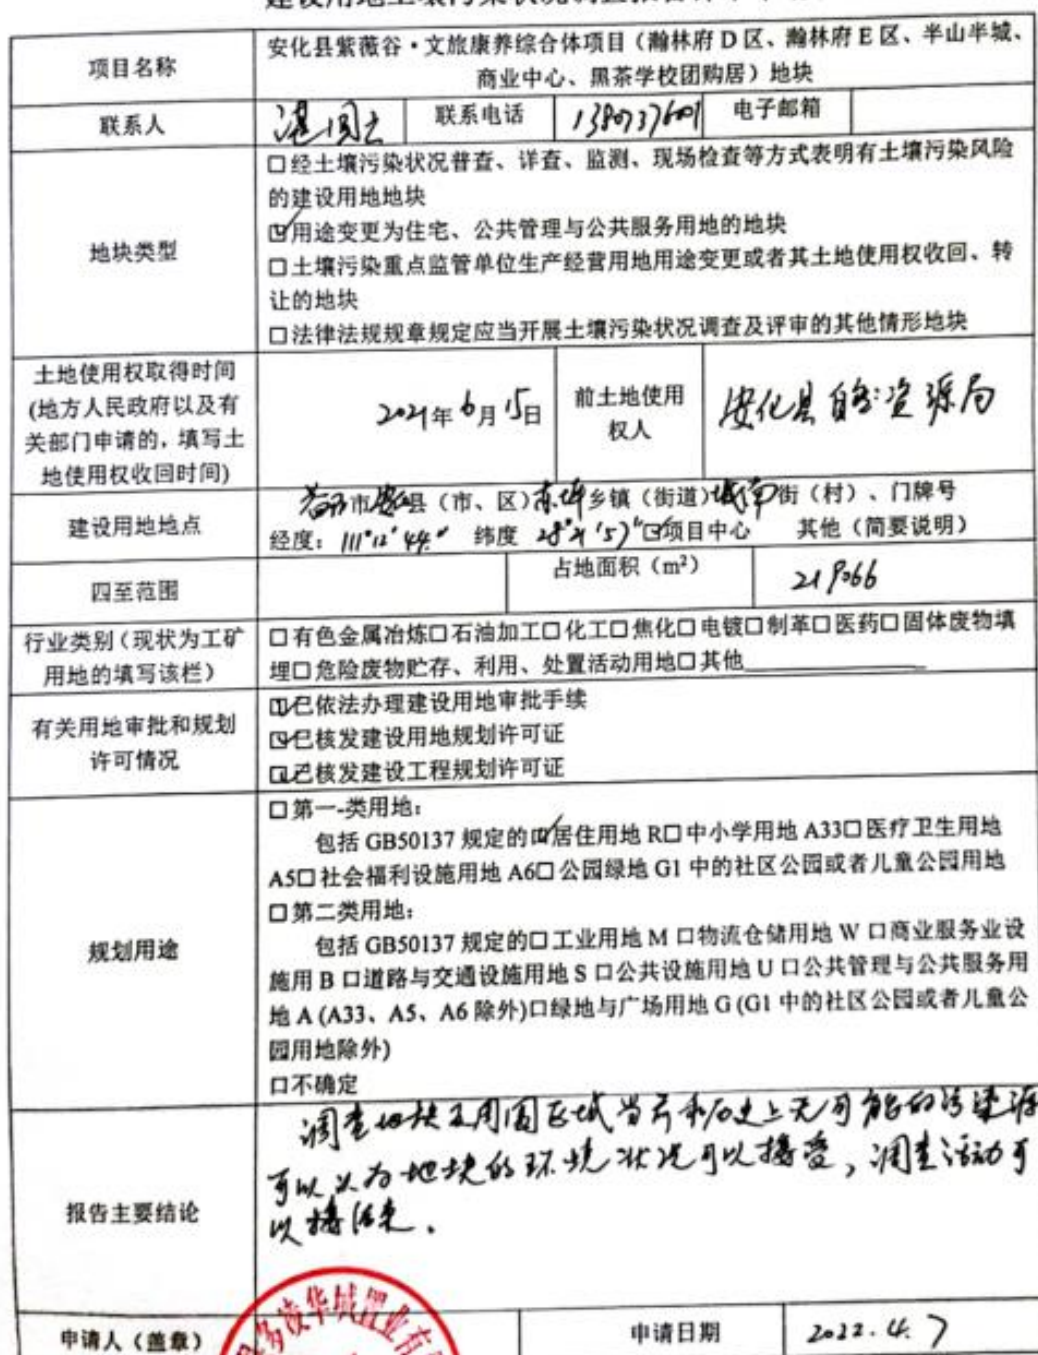 建设用地土壤污染状况调查报告评审申请表
项目名称
安化县紫薇谷·文旅康养综合体项目（瀚林府 D 区、瀚林府 E 区、半山半城、
商业中心、黑茶学校团购居）地块
联系人
联系电话
电子邮箱
地块类型
口经土壤污染状况普查、详查、监测、现场检查等方式表明有土壤污染风险
的建设用地地块
☑用途变更为住宅、公共管理与公共服务用地的地块
口土壤污染重点监管单位生产经营用地用途变更或者其土地使用权收回、转
让的地块
口法律法规规章规定应当开展土壤污染状况调查及评审的其他情形地块
土地使用权取得时间
(地方人民政府以及有
关部门申请的，填写土
地使用权收回时间)
2021年6月15日
前土地使用
权人
安化县自然资源局
建设用地地点
益阳市安化县（市、区）东坪乡镇（街道）城南街（村）、门牌号
经度：111°12′44″ 纬度 28°21′57″☑项目中心 其他（简要说明）
四至范围
占地面积（m²）
219066
行业类别（现状为工矿
用地的填写该栏）
口有色金属冶炼口石油加工口化工口焦化口电镀口制革口医药口固体废物填
埋口危险废物贮存、利用、处置活动用地口其他
有关用地审批和规划
许可情况
☑已依法办理建设用地审批手续
☑已核发建设用地规划许可证
☑已核发建设工程规划许可证
规划用途
口第一-类用地：
包括 GB50137 规定的☑居住用地 R口中小学用地 A33口医疗卫生用地
A5口社会福利设施用地 A6口公园绿地 G1 中的社区公园或者儿童公园用地
口第二类用地：
包括 GB50137 规定的口工业用地 M 口物流仓储用地 W 口商业服务业设
施用 B 口道路与交通设施用地 S 口公共设施用地 U 口公共管理与公共服务用
地 A (A33、A5、A6 除外)口绿地与广场用地 G (G1 中的社区公园或者儿童公
园用地除外)
口不确定
报告主要结论
调查地块及周围区域当前和历史上无可能的污染源
可以认为地块的环境状况可以接受，调查活动可
以结束.
申请人（盖章）
华城置业有
申请日期
2022.4.7